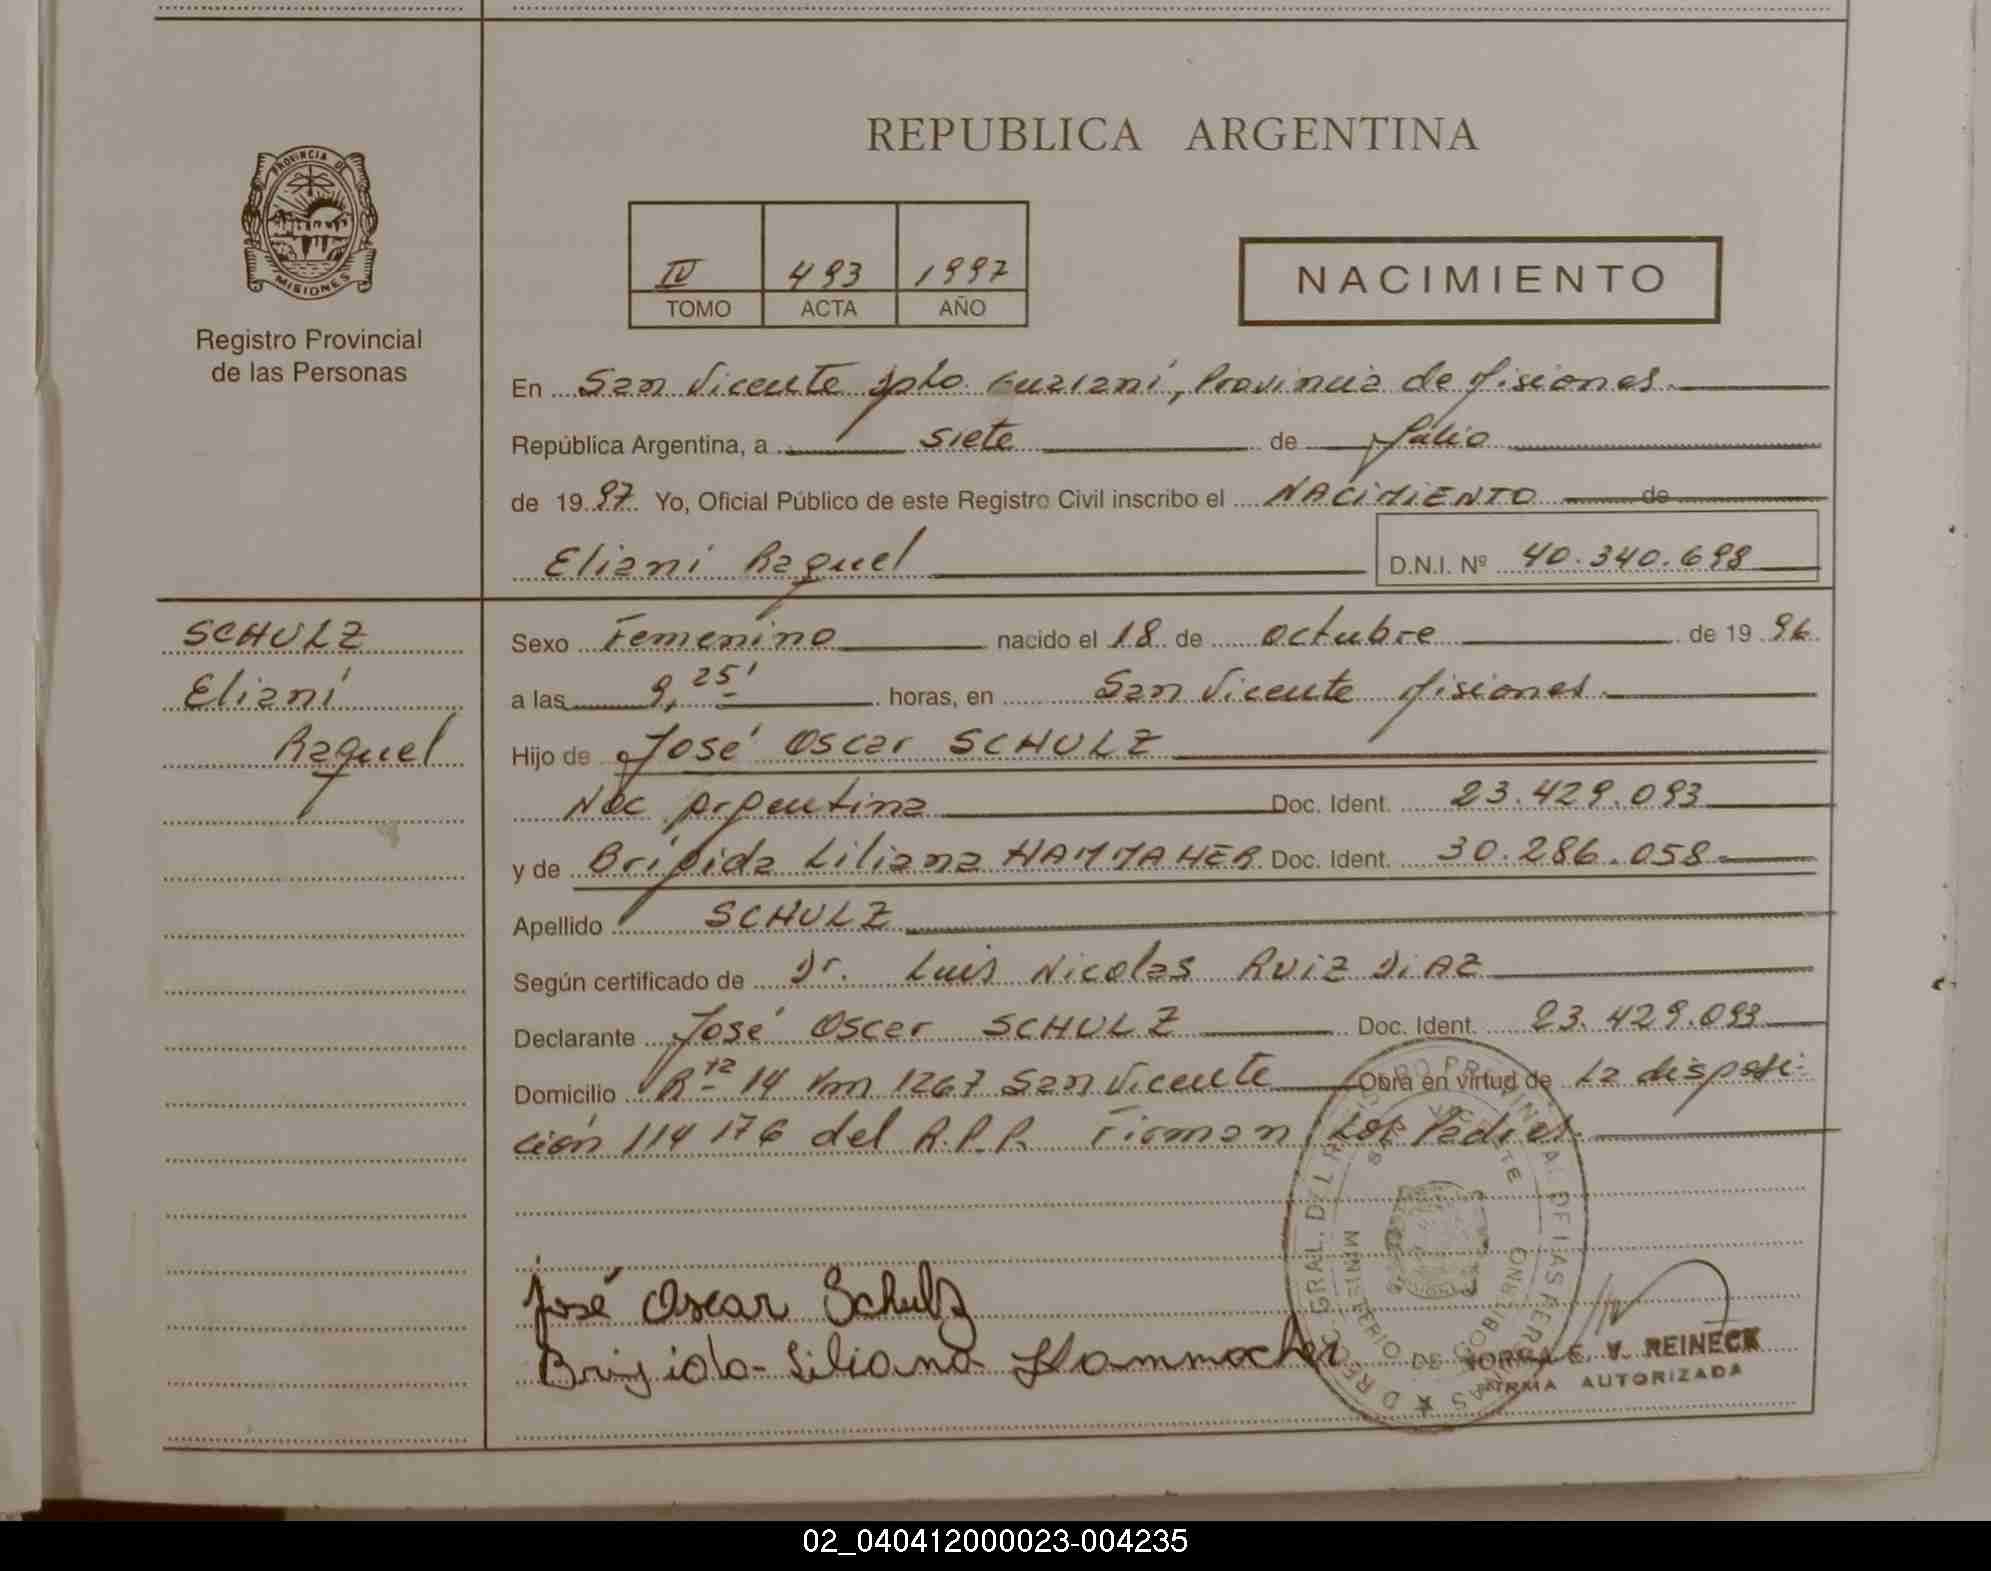 REPUBLICA ARGENTINA
PROVINCIA DE
MISIONES
Registro Provincial
de las Personas
IV 493 1997
TOMO ACTA AÑO
NACIMIENTO
En San Vicente Dpto. Guaraní, Provincia de Misiones
República Argentina, a siete de Julio
de 1997 Yo, Oficial Público de este Registro Civil inscribo el NACIMIENTO de
Eliani Raquel D.N.I. Nº 40.340.698
SCHULZ
Eliani
Raquel
Sexo Femenino nacido el 18 de octubre de 1996
a las 9,25' horas, en San Vicente Misiones
Hijo de José Oscar SCHULZ
Nac Argentina Doc. Ident. 23.429.093
y de Brígida Liliana HAMMAHER Doc. Ident. 30.286.058
Apellido SCHULZ
Según certificado de Dr. Luis Nicolas RUIZ DIAZ
Declarante José Oscar SCHULZ Doc. Ident. 23.429.093
Domicilio Rta 14 Km 1267 San Vicente Obra en virtud de la disposi-
ción 114176 del R.P.P. Firman los Padres
José Oscar Schulz
Brigida-Liliana Hammacher
E. V. REINECK
FIRMA AUTORIZADA
02_040412000023-004235